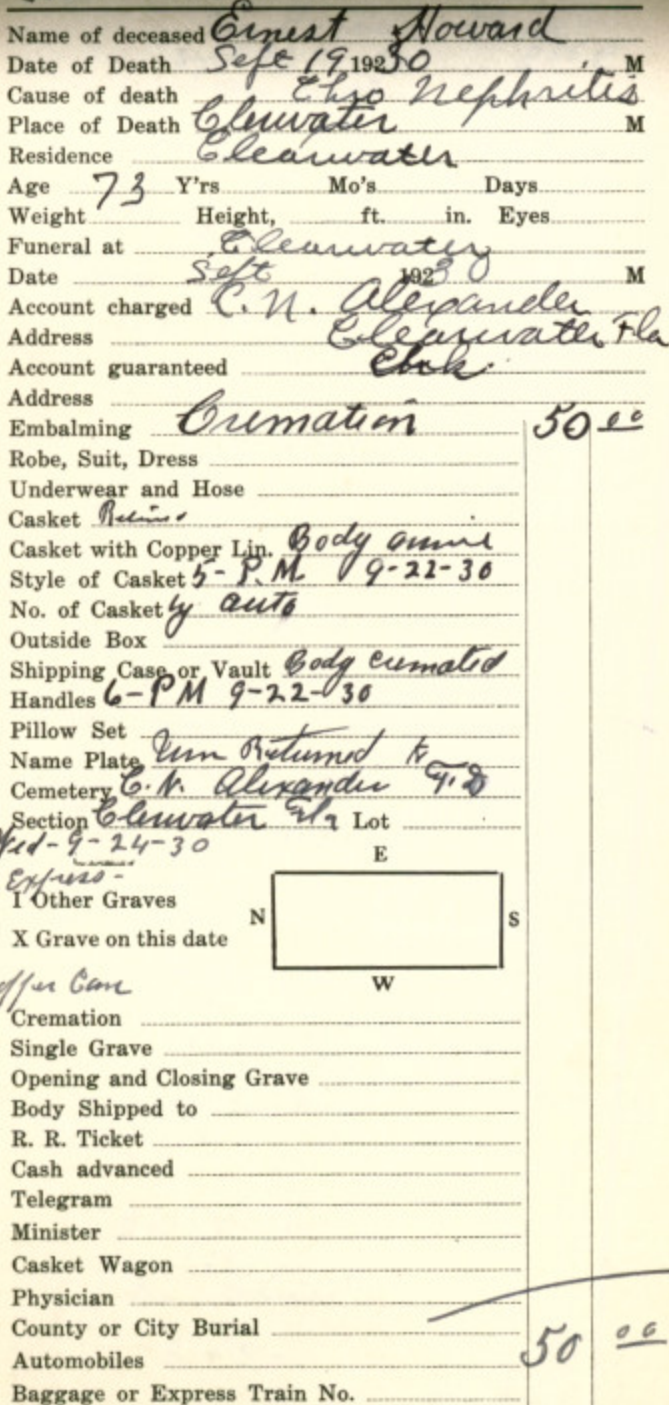 Name of deceased Ernest Howard
Date of Death Sept 19 19230 M
Cause of death Chro Nephritis
Place of Death Clerwater M
Residence Clearwater
Age 73 Y'rs Mo's Days
Weight Height, ft. in. Eyes
Funeral at Clearwater
Date Sept 1930 M
Account charged C. N. Alexander
Address Clearwater Fla
Account guaranteed
Address
Embalming Cremation 50 00
Robe, Suit, Dress
Underwear and Hose
Casket
Casket with Copper Lin. Body
Style of Casket 5-P.M 9-22-30
No. of Casket by auto
Outside Box
Shipping Case or Vault Body cremated
Handles 6-PM 9-22-30
Pillow Set
Name Plate Urn Returned to
Cemetery C. N. Alexander F.D
Section Clerwater Fla Lot
Wed-9-24-30
Express-
E
I Other Graves
N S
X Grave on this date
W
Cremation
Single Grave
Opening and Closing Grave
Body Shipped to
R. R. Ticket
Cash advanced
Telegram
Minister
Casket Wagon
Physician
County or City Burial
Automobiles 50 00
Baggage or Express Train No.